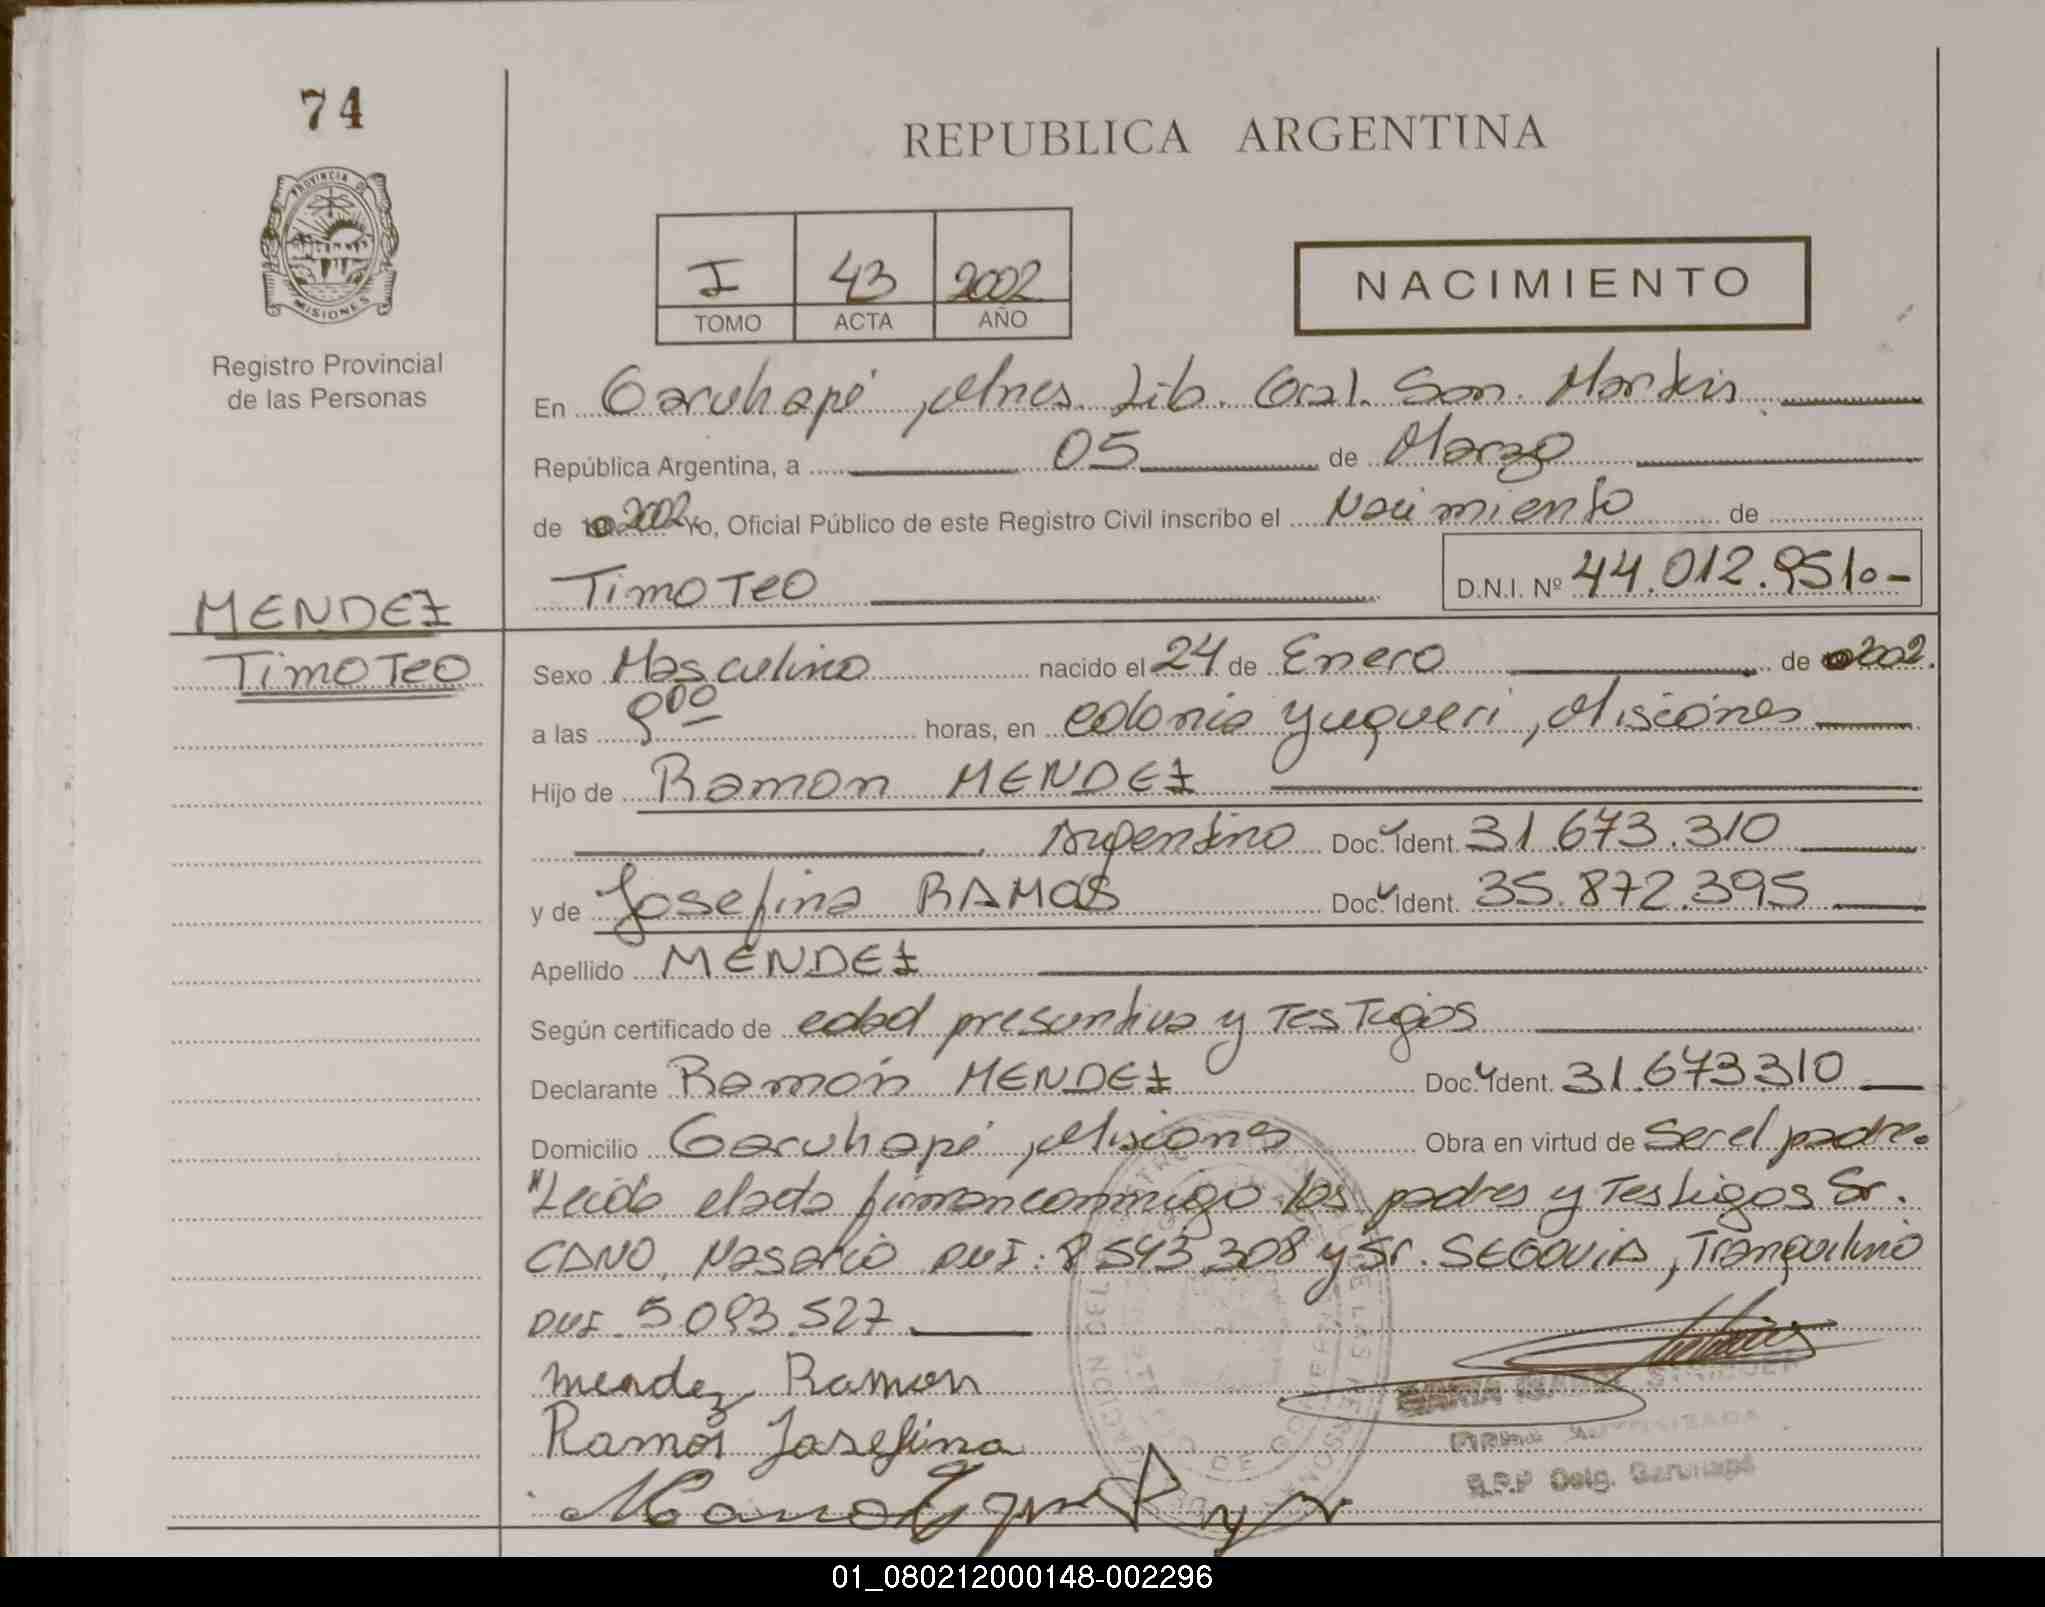 74
REPUBLICA ARGENTINA
PROVINCIA DE
MISIONES
Registro Provincial
de las Personas
I 43 2002
TOMO ACTA AÑO
NACIMIENTO
En Garuhapé, Mnes. Lib. Gral. San. Martin
República Argentina, a 05 de Marzo
de 2002 Yo, Oficial Público de este Registro Civil inscribo el Nacimiento de
TimoTeo D.N.I. Nº 44.012.951.-
MENDEZ
TimoTeo
Sexo Masculino nacido el 24 de Enero de 2002.
a las 9:00 horas, en colonia yuqueri, Misiones
Hijo de Ramon MENDEZ
Argentino Doc. Ident. 31.673.310
y de Josefina RAMOS Doc. Ident. 35.872.395
Apellido MENDEZ
Según certificado de edad presuntiva y TesTigos
Declarante Ramón MENDEZ Doc. Ident. 31.673310
Domicilio Garuhapé, Misiones Obra en virtud de ser el padre.
"Leida el acta firman conmigo los padres y Testigos Sr.
CANO, Nasario DNI: 8543308 y Sr. SEGOVIA, Tranquilino
DNI 5.093.527
mendez Ramon
Ramos Josefina
R.P.P Delg. Garuhapé
01_080212000148-002296